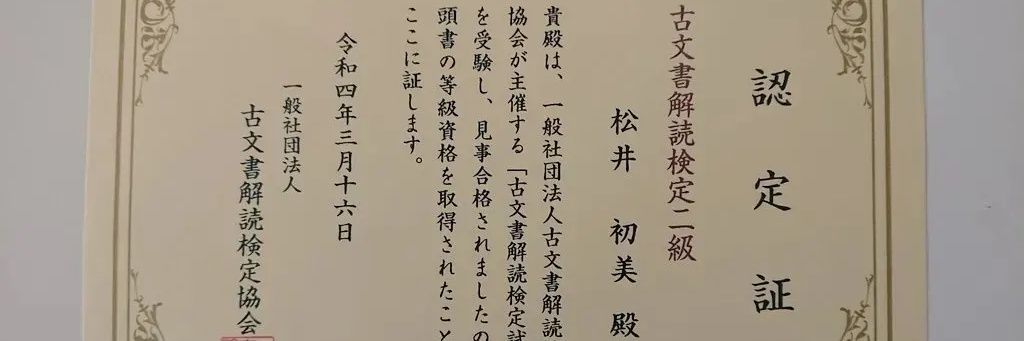 認定証
古文書解読検定二級
松井 初美 殿
貴殿は、一般社団法人古文書解読
協会が主催する「古文書解読検定試
を受験し、見事合格されましたの
頭書の等級資格を取得されたこと
ここに証します。
令和四年三月十六日
一般社団法人
古文書解読検定協会